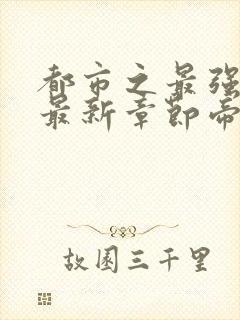 都市之最强
最新章节帝
故园三千里